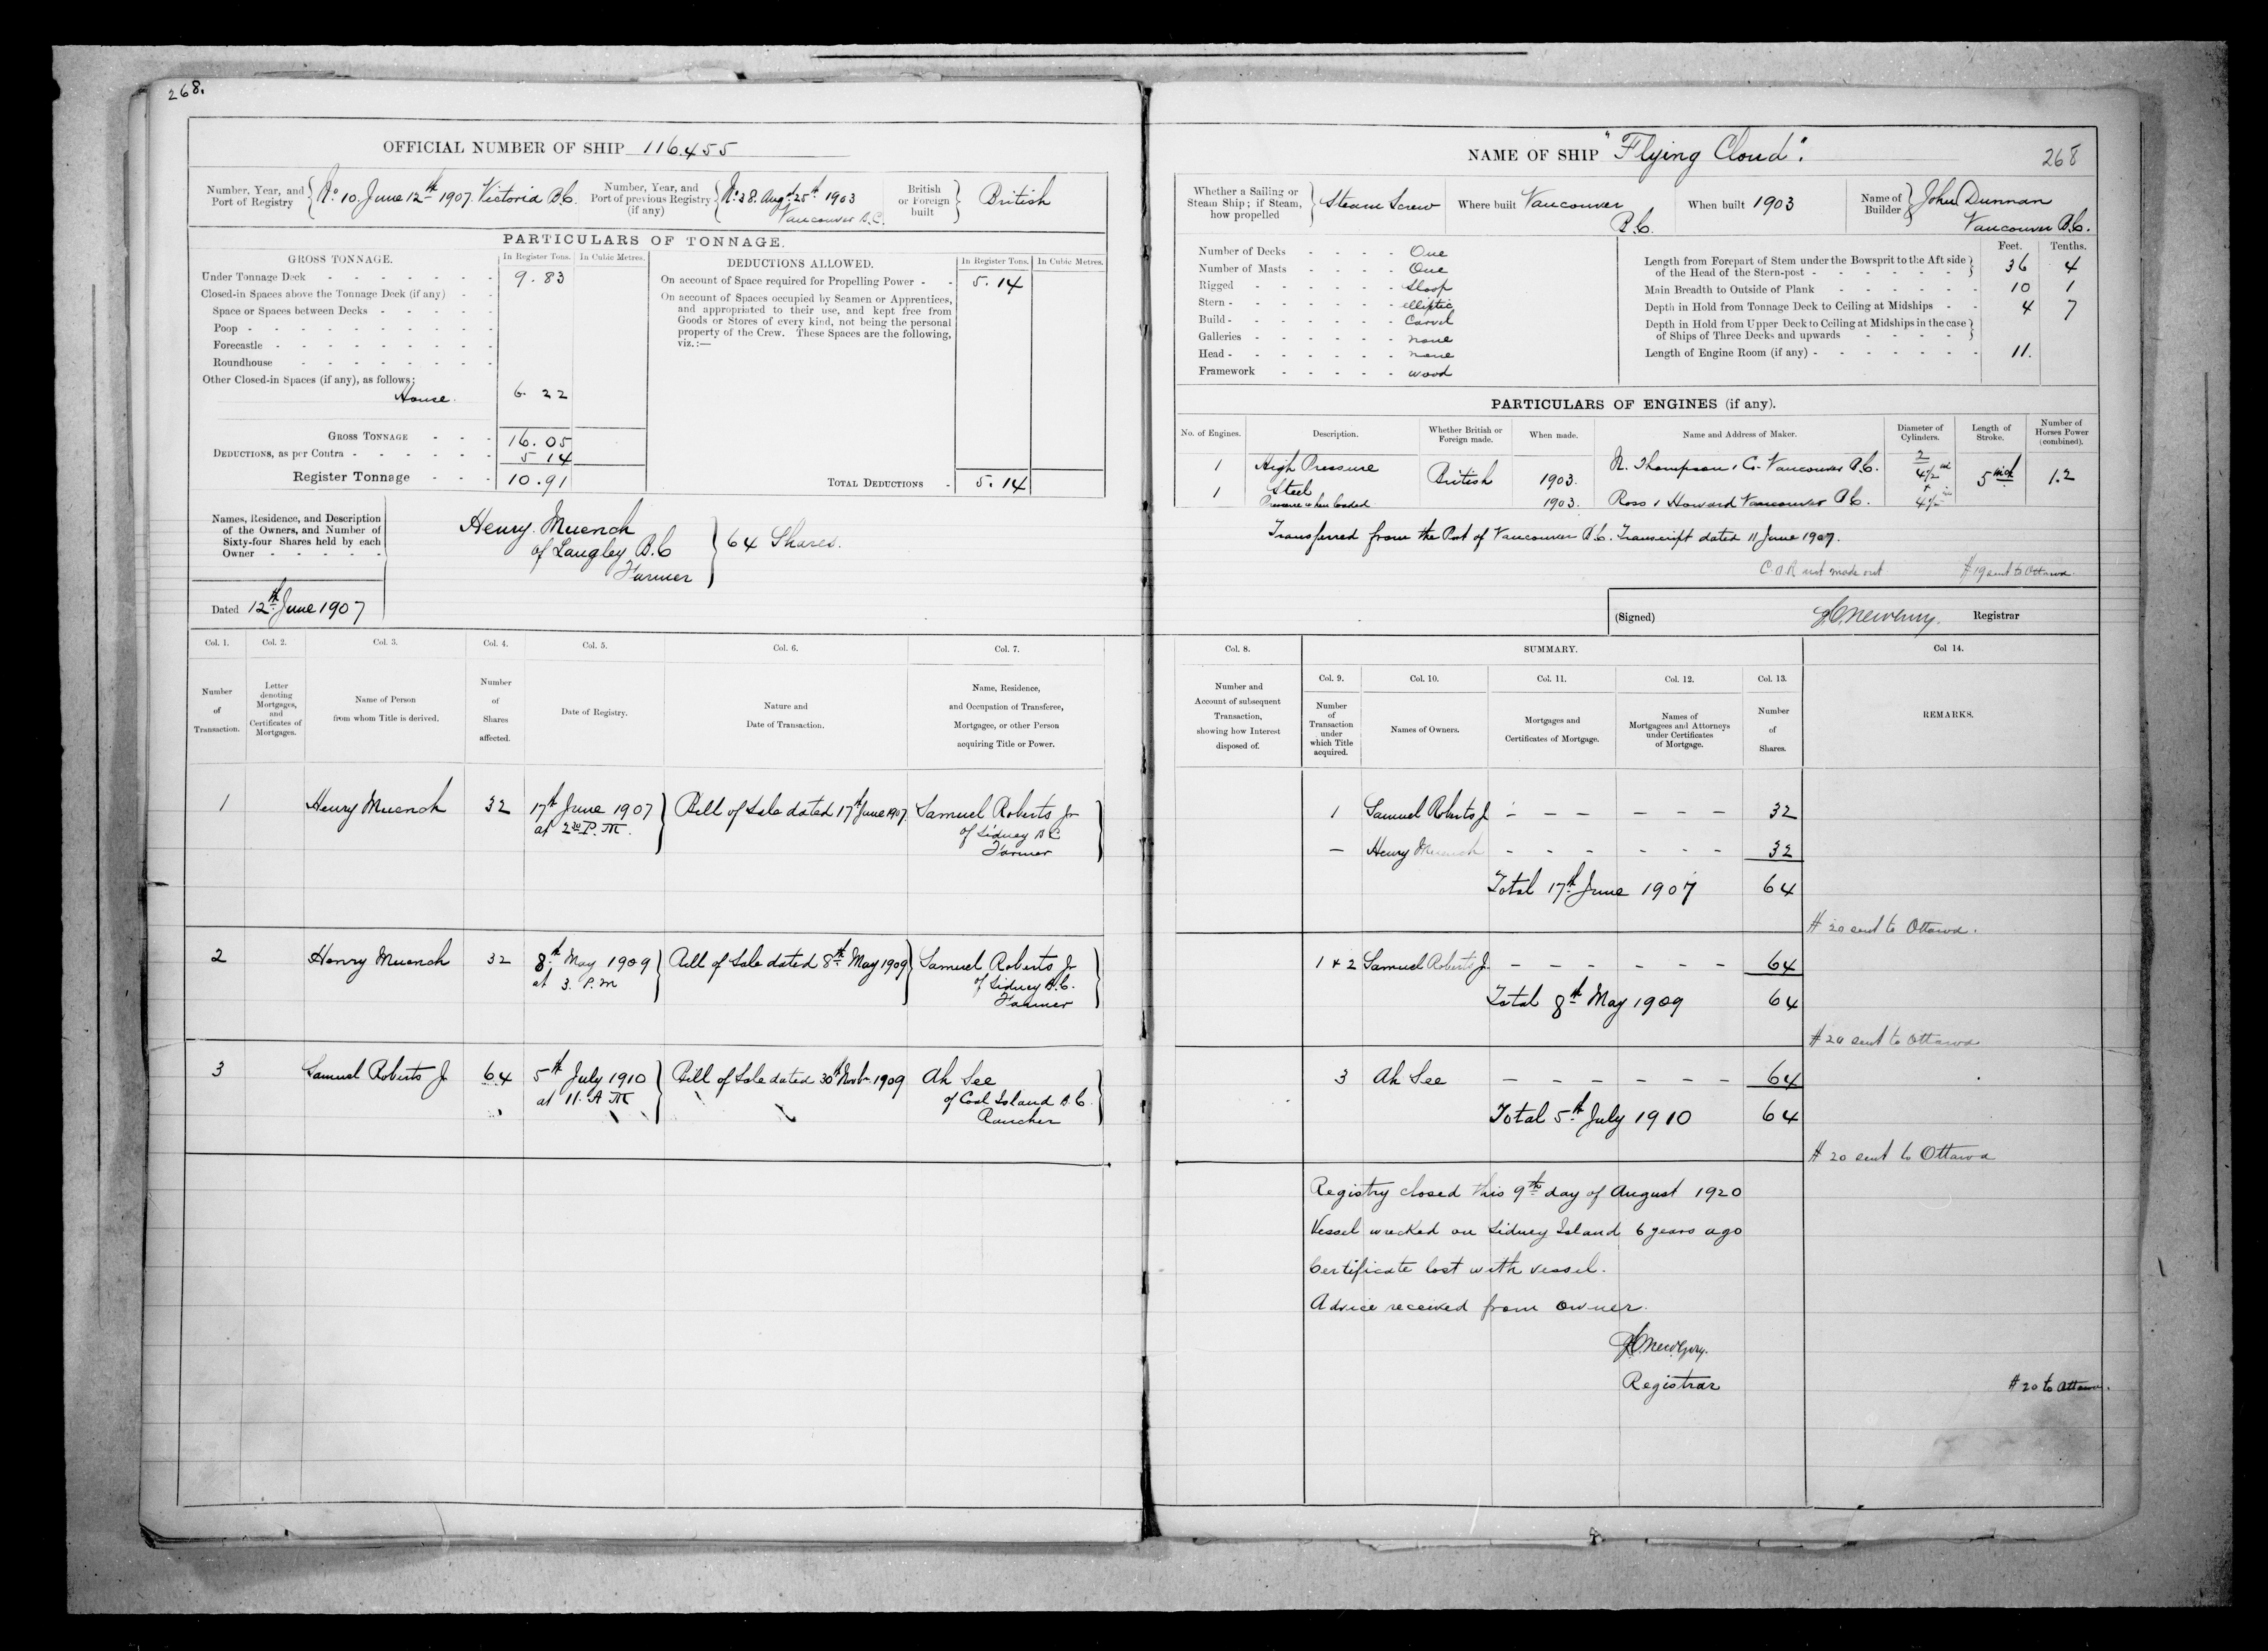 268.
OFFICIAL NUMBER OF SHIP 116.455
Number, Year, and Port of Registry
No. 10. June 12th 1907. Victoria B.C.
Number, Year, and Port of previous Registry (if any)
No. 38. Augst 25th 1903
Vancouver B.C.
British or Foreign built
British
PARTICULARS OF TONNAGE.
GROSS TONNAGE.
In Register Tons.
In Cubic Metres.
Under Tonnage Deck - - - - - - - 9.83
Closed-in Spaces above the Tonnage Deck (if any) - -
Space or Spaces between Decks - - - - -
Poop - - - - - - - - - -
Forecastle - - - - - - - - -
Roundhouse - - - - - - - -
Other Closed-in Spaces (if any), as follows:
House. 6. 22
GROSS TONNAGE - - - 16.05
DEDUCTIONS, as per Contra - - - - - - 5 14
Register Tonnage - - - 10.91
DEDUCTIONS ALLOWED.
In Register Tons.
In Cubic Metres.
On account of Space required for Propelling Power - - 5.14
On account of Spaces occupied by Seamen or Apprentices,
and appropriated to their use, and kept free from
Goods or Stores of every kind, not being the personal
property of the Crew. These Spaces are the following,
viz.:—
TOTAL DEDUCTIONS - 5.14
Names, Residence, and Description
of the Owners, and Number of
Sixty-four Shares held by each
Owner - - - - -
Henry Muench
of Langley B.C
Farmer
64 Shares.
Dated 12th June 1907
Col. 1. Col. 2. Col. 3. Col. 4. Col. 5. Col. 6. Col. 7.
Number of Transaction.
Letter denoting Mortgages, and Certificates of Mortgages.
Name of Person from whom Title is derived.
Number of Shares affected.
Date of Registry.
Nature and Date of Transaction.
Name, Residence, and Occupation of Transferee, Mortgagee, or other Person acquiring Title or Power.
1 Henry Muench 32 17th June 1907 Bill of Sale dated 17th June 1907. Samuel Roberts Jr
at 2 30 P.M. of Sidney B C
Farmer
2 Henry Muench 32 8th May 1909 Bill of Sale dated 8th May 1909 Samuel Roberts Jr
at 3. P.m of Sidney B.C.
Farmer
3 Samuel Roberts Jr 64 5th July 1910 Bill of Sale dated 30th Novbr 1909 Ah See
at 11. A M of Coal Island B.C.
Rancher
NAME OF SHIP "Flying Cloud".
268
Whether a Sailing or Steam Ship; if Steam, how propelled
Steam Screw
Where built Vancouver
B.C.
When built 1903
Name of Builder
John Dunnan
Vancouver B.C.
Number of Decks - - - - One
Number of Masts - - - - One
Rigged - - - - - - Sloop
Stern - - - - - - - elliptic
Build - - - - - - - Carvel
Galleries - - - - - - none
Head - - - - - - - none
Framework - - - - - wood
Feet. Tenths.
Length from Forepart of Stem under the Bowsprit to the Aft side
of the Head of the Stern-post - - - - - - - 36 4
Main Breadth to Outside of Plank - - - - - - 10 1
Depth in Hold from Tonnage Deck to Ceiling at Midships - - 4 7
Depth in Hold from Upper Deck to Ceiling at Midships in the case
of Ships of Three Decks and upwards - - - -
Length of Engine Room (if any) - - - - - - - 11.
PARTICULARS OF ENGINES (if any).
No. of Engines.
Description.
Whether British or Foreign made.
When made.
Name and Address of Maker.
Diameter of Cylinders.
Length of Stroke.
Number of Horses Power (combined).
1 High Pressure British 1903. N. Thompson & Co. Vancouver B.C. 2 4½ in 5 inch 1.2
1 Steel
Pressure when loaded 1903. Ross & Howard Vancouver B.C. 4½
Transferred from the Port of Vancouver B.C. Transcript dated 11 June 1907.
C.O.R not made out # 19 sent to Ottawa.
(Signed) Newbury. Registrar
Col. 8.
Number and Account of subsequent Transaction, showing how Interest disposed of.
SUMMARY.
Col. 9. Col. 10. Col. 11. Col. 12. Col. 13.
Number of Transaction under which Title acquired.
Names of Owners.
Mortgages and Certificates of Mortgage.
Names of Mortgagees and Attorneys under Certificates of Mortgage.
Number of Shares.
Col 14.
REMARKS.
1 Samuel Roberts Jr - - - - - - 32
— Henry Muench - - - - - - 32
Total 17th June 1907 64
# 20 sent to Ottawa.
1 & 2 Samuel Roberts Jr - - - - - - 64
Total 8th May 1909 64
# 20 sent to Ottawa
3 Ah See - - - - - - 64
Total 5th July 1910 64
# 20 sent to Ottawa
Registry closed this 9th day of August 1920
Vessel wrecked on Sidney Island 6 years ago
Certificate lost with vessel.
Advice received from owner.
Newbury.
Registrar
# 20 to Ottawa.